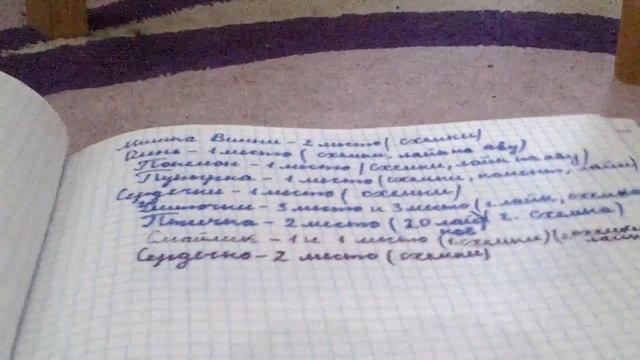 Мишка Винни - 2 место (схемки)
Пинь - 1 место (схемки, лайк на аву)
Покемон - 1 место (схемки, лайк на аву)
- 1 место (схемки, коммент, лайк)
Сердечки - 1 место (схемки)
- 3 место и 3 место (лайк, схемка
Птичка - 2 место (20 лай 2. схемка)
ков
Смайлик - 1 и 1 место (1 схемки) (
лайк
Сердечко - 2 место (схемки)